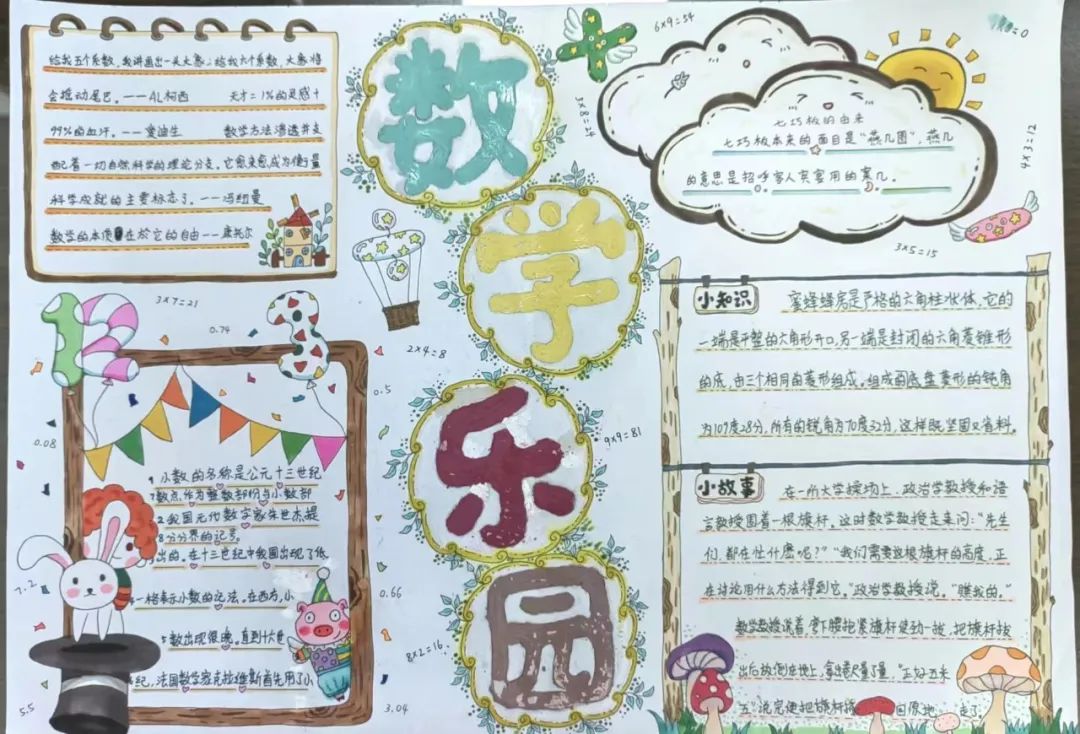 给我五个系数,我讲画出一头大象;给我六个系数,大象将
会摇动尾巴。——AL柯西 天才=1%的灵感+
99%的血汗。——爱迪生 数学方法渗透并支
配着一切自然科学的理论分支。它愈来愈成为衡量
科学成就的主要标志了。——冯纽曼
数学的本质在於它的自由——康托尔
数
学
乐
园
6×9=54
3×8=24
4×3=12
3×5=15
七巧板的由来
七巧板本来的面目是“燕几图”,燕几
的意思是招呼客人宾宴用的案几。
3×7=21
0.74
2×4=8
0.5
0.08
9×9=81
7.2
0.66
8×2=16
5.5
3.04
1 小数的名称是公元十三世纪
7数点,作为整数部份与小数部
2 我国元代数字家朱世杰提
8分分界的记号。
3出的,在十三世纪中我国出现了低
4一格表示小数的记法。在西方,小
5数出现很晚,直到十六世
纪,法国数学家克拉维斯首先用了小
小知识
蜜蜂蜂房是严格的六角柱状体,它的
一端是平整的六角形开口,另一端是封闭的六角菱锥形
的底,由三个相同的菱形组成。组成的底盘菱形的钝角
为109度28分,所有的锐角为70度32分,这样既坚固又省料。
小故事
在一所大学操场上,政治学教授和语
言教授围着一根旗杆。这时数学教授走来问:“先生
们,都在忙什麽呢?”“我们需要这根旗杆的高度,正
在讨论用什么方法得到它。”政治学教授说。“瞧我的。”
数学教授说着,弯下腰抱紧旗杆使劲一拔,把旗杆拔
出后放倒在地上,拿卷尺量了量。“正好五米
五”说完便把旗杆 回原地 走了